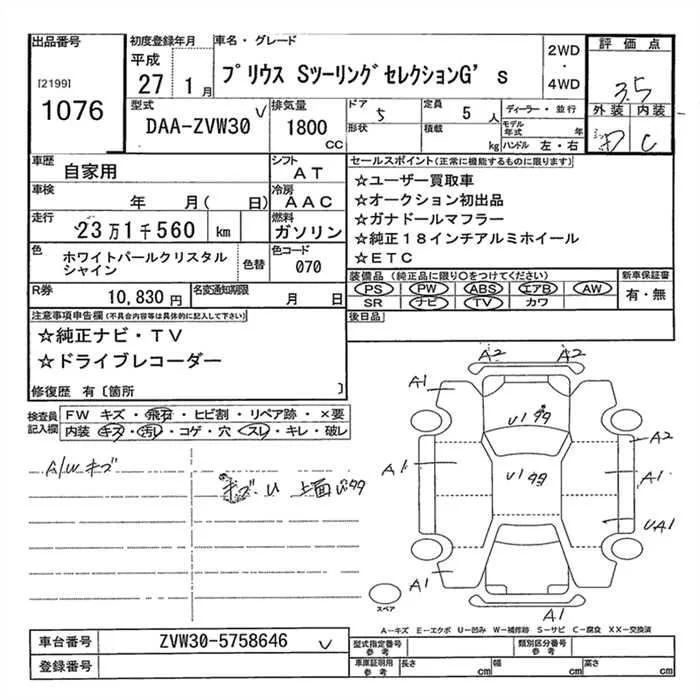 出品番号 初度登録年月 車名・グレード 2WD・4WD 評価点
[2199] 1076 平成 27 1月 プリウス SツーリングセレクションG's 3.5
外装 内装
D C
型式 排気量 ドア 定員 ディーラー・並行
DAA-ZVW30 1800 CC 5 5人
形状 積載 kg モデル年式 年 ハンドル 左・右
車歴 自家用 シフト AT
車検 年 月( 日) 冷房 AAC
走行 23万1千560 km 燃料 ガソリン
色 ホワイトパールクリスタルシャイン 色替 色コード 070
R券 10,830円 名変通知期限 月 日
セールスポイント(正常に機能するものに限ります)
☆ユーザー買取車
☆オークション初出品
☆ガナドールマフラー
☆純正18インチアルミホイール
☆ETC
装備品 (純正品に限り○をつけてください) 新車保証書
PS PW ABS エアB AW 有・無
SR ナビ TV カワ
後日品
注意事項申告欄 (不具合内容等は具体的に記入して下さい)
☆純正ナビ・TV
☆ドライブレコーダー
修復歴 有〔箇所 〕
検査員記入欄 FW キズ・飛石・ヒビ割・リペア跡・×要
内装 キズ・汚レ・コゲ・穴・スレ・キレ・破レ
A/Wキズ
キズ・U 上面
A2 A2
A1
U1
A2
A1 U1 A1
UA1
A1
A1
スペア
A―キズ E―エクボ U―凹み W―補修跡 S―サビ C―腐食 XX―交換済
車台番号 ZVW30-5758646
登録番号
型式指定番号 参考 類別区分番号 参考
車庫証明用 参考 長さ cm 幅 cm 高さ cm